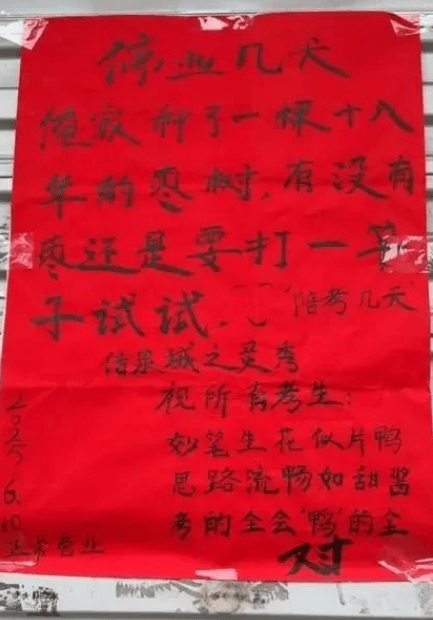 停业几天
俺家种了一棵十八
年的枣树,有没有
枣还是要打一竿
子试试。
陪考几天
借泉城之灵秀
祝所有考生:
妙笔生花似片鸭
思路流畅如甜酱
考的全会'鸭'的全
对
2025 6.10
正常营业